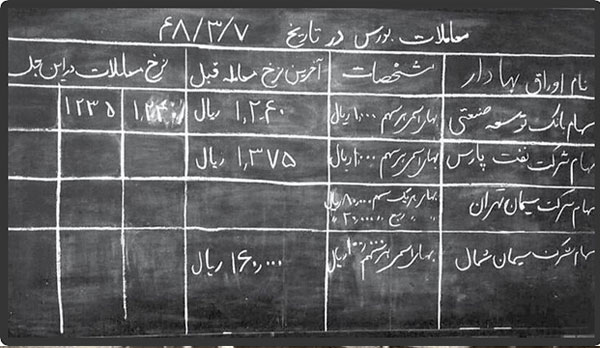 معاملات بورس در تاریخ ۶۸/۳/۷
نام اوراق بهادار مشخصات آخرین نرخ معامله قبل نرخ معاملات در این جلسه
سهام بانک توسعه صنعتی بهای اسمی هر سهم ۱۰۰۰ ریال ۱٫۲۶۰ ریال ۱٫۲۴۰ ۱۲۳۵
سهام شرکت نفت پارس بهای اسمی هر سهم ۱۰۰۰ ریال ۱٫۳۷۵ ریال
سهام شرکت سیمان تهران بهای هر یک سهم ۸۰٫۰۰۰ ریال
سهام شرکت سیمان شمال بهای اسمی هر سهم ۱۰۰٫۰۰۰ ریال ۱۶۰٫۰۰۰ ریال